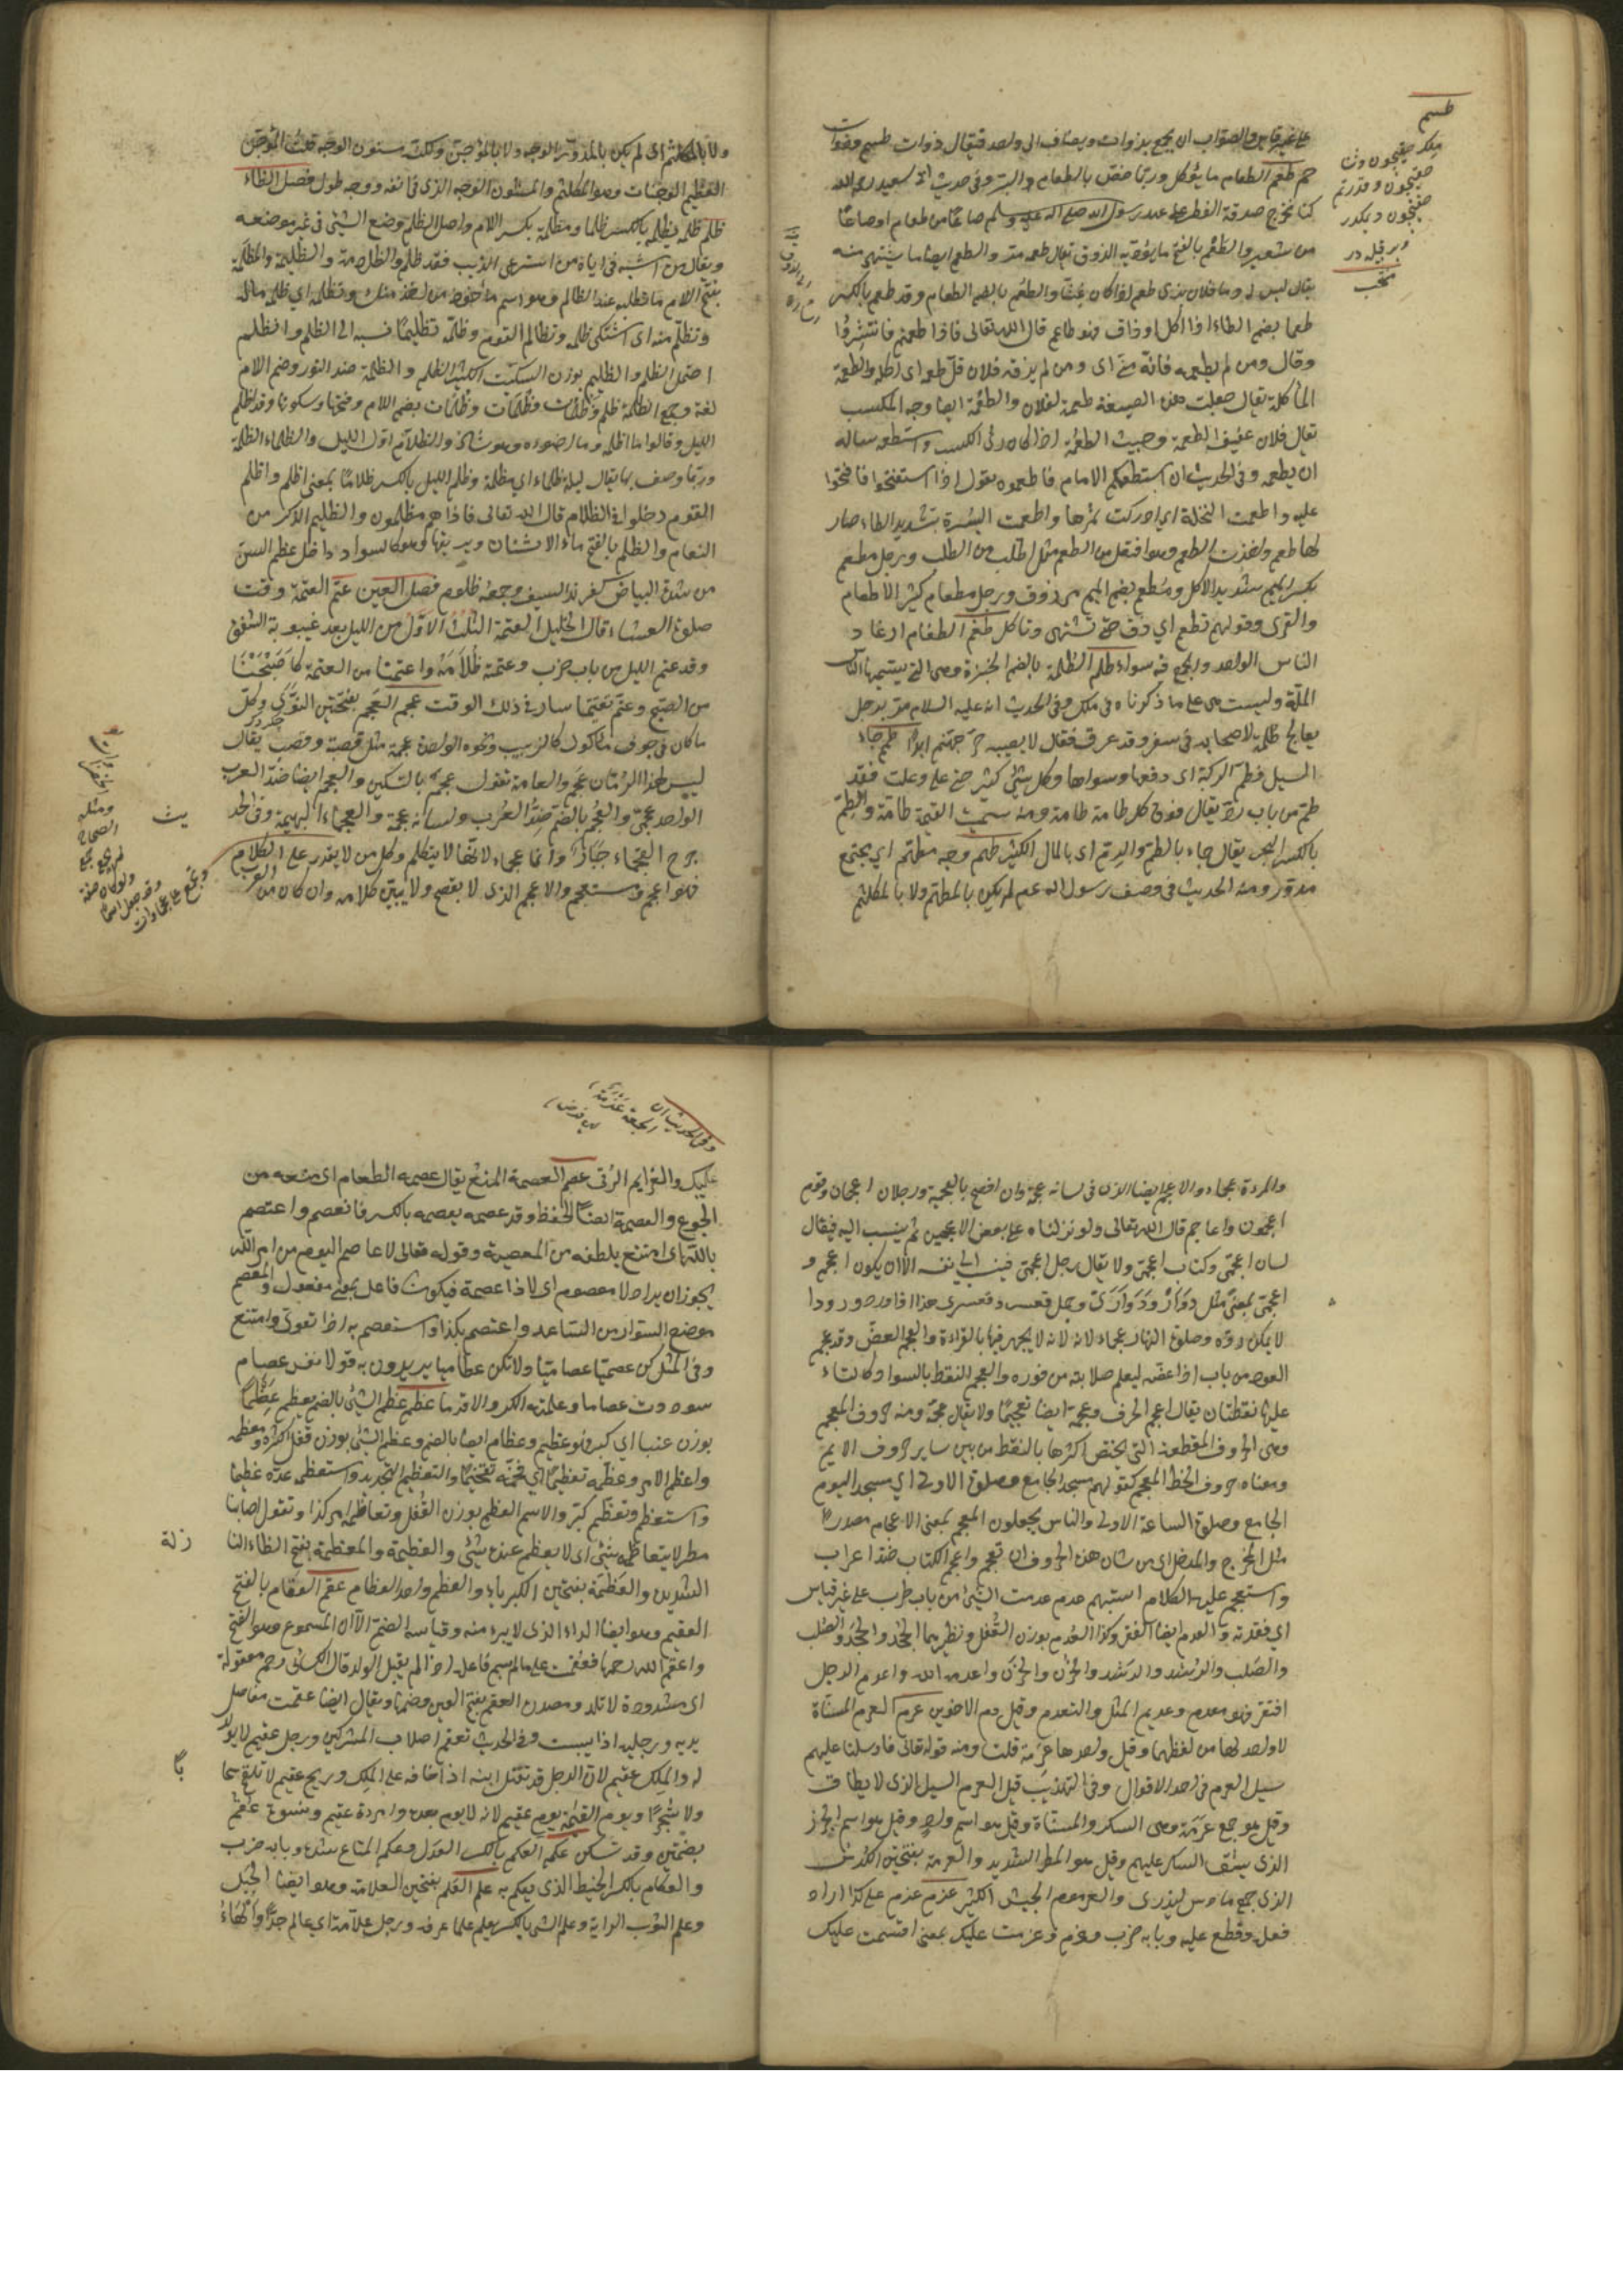 على غير قياس والصواب ان يجمع بذوات ويضاف الى واحد فيقال ذوات طسم وذوات
حم طعم الطعام ما يؤكل وربما خص بالطعام البر وفي حديث ابي سعيد رضي الله
كنا نخرج صدقة الفطر على عهد رسول الله صلى الله عليه وسلم صاعا من طعام او صاعا
من شعير والطعم بالفتح ما يؤديه الذوق يقال طعمه مر والطعم ايضا ما يشتهى منه
يقال ليس له طعم وما فلان بذي طعم اذا كان غثا والطعم بالضم الطعام وقد طعم بالكسر
طعما بضم الطاء اذا اكل او ذاق فهو طاعم قال الله تعالى فاذا طعمتم فانتشروا
وقال ومن لم يطعمه فانه مني اى ومن لم يذقه فلان قل طعمه اى اكله والطعمة
المأكلة يقال جعلت هذه الضيعة طعمة لفلان والطعمة ايضا وجه المكسب
يقال فلان عفيف الطعمة وخبيث الطعمة اذا كان ردى الكسب واستطعمه ساله
ان يطعمه وفي الحديث ان استطعمكم الامام فاطعموه يقول اذا استفتح فافتحوا
عليه واطعمت النخلة اى ادركت ثمرها واطعمت البسرة بتشديد الطاء صار
لها طعم واخذت الطعم وهو افتعل من الطعم مثل اطلب من الطلب ورجل مطعم
بكسر الميم شديد الاكل ومطعم بضم الميم مرزوق ورجل مطعام كثير الاطعام
والقرى وقولهم تطعم اى ذق حتى تشتهي وتاكل طغم الطغام اوغاد
الناس الواحد والجمع فيه سواء طلم الطلمة بالضم الخبزة وهى التي يسميها الناس
الملة وليست هى على ما ذكرناه في ملل وفي الحديث انه عليه السلام مر برجل
يعالج طلمة لاصحابه في سفر وقد عرق فقال لا يصيبه حر جهنم ابدا طمم جاء
السيل فطم الركية اى دفنها وسواها وكل شئ كثر حتى علا وغلب فقد
طم من باب رد يقال فوق كل طامة طامة ومنه سميت القيمة طامة والطم
بالكسر البحر يقال جاء بالطم والرم اى بالمال الكثير طهم وجه مطهم اى مجتمع
مدور ومنه الحديث في وصف رسول الله عم لم يكن بالمطهم ولا بالمكلثم
ولا بالمكلثم اى لم يكن بالمدور الوجه ولا بالموجن ولكنه مسنون الوجه قلت الموجن
العظيم الوجنات وهو المكلثم والمسنون الوجه الذى في انفه ووجهه طول فصل الظاء
ظلم ظلمه يظلمه بالكسر ظلما ومظلمة بكسر اللام واصل الظلم وضع الشئ في غير موضعه
ويقال من اشبه اباه فما ظلم ومن استرعى الذيب فقد ظلم والظلامة والظليمة والمظلمة
بفتح اللام ما تطلبه عند الظالم وهو اسم ما اخذ منك وتظلمه اى ظلمه ماله
وتظلم منه اى اشتكى ظلمه وتظالم القوم وظلمه تظليما نسبه الى الظلم وانظلم
احتمل الظلم والظليم بوزن السكيت الكثير الظلم والظلمة ضد النور وضم اللام
لغة وجمع الظلمة ظلم وظلمات وظلمات وظلمات بضم اللام وفتحها وسكونها وقد اظلم
الليل وقالوا ما اظلمه وما اضوءه وهو شاذ والظلام اول الليل والظلماء الظلمة
وربما وصف بها يقال ليلة ظلماء اى مظلمة وظلم الليل بالكسر ظلاما بمعنى اظلم واظلم
القوم دخلوا في الظلام قال الله تعالى فاذا هم مظلمون والظليم الذكر من
النعام والظلم بالفتح ماء الاسنان وبريقها وهو كالسواد داخل عظم السن
من شدة البياض كفرند السيف وجمعه ظلوم فصل العين عتم العتمة وقت
صلوة العشاء قال الخليل العتمة الثلث الاول من الليل بعد غيبوبة الشفق
وقد عتم الليل من باب ضرب وعتمته ظلامه واعتمنا من العتمة كاصبحنا
من الصبح وعتم تعتيما سار في ذلك الوقت عجم العجم بفتحتين النوى وكل
ما كان في جوف ماكول كالزبيب ونحوه الواحدة عجمة مثل قصبة وقصب يقال
ليس لهذا الرمان عجم والعامة تقول عجم بالتسكين والعجم ايضا ضد العرب
الواحد عجمي والعجم بالضم ضد العرب وفي لسانه عجمة والعجماء البهيمة وفي الحد
جرح العجماء جبار وانما عجماء لانها لا يتكلم وكل من لا يقدر على الكلام
فهو اعجم ومستعجم والاعجم الذى لا يفصح ولا يبين كلامه وان كان من العرب
والمرءة عجماء والاعجم ايضا الذى في لسانه عجمة وان افصح بالعجمية ورجلان اعجمان وقوم
اعجمون واعاجم قال الله تعالى ولو نزلناه على بعض الاعجمين ثم ينسب اليه فيقال
لسان اعجمي وكتاب اعجمي ولا يقال رجل اعجمي فينسب الى نفسه الا ان يكون اعجم و
اعجمي بمعنى مثل دوار ودواري وجمل قعسر وقعسري هذا اذا ورد ورودا
لا يمكن رده وصلوة النهار عجماء لانه لا يجهر فيها بالقراءة والعجم العض وقد عجم
العود من باب اذا عضه ليعلم صلابته من خوره والعجم النقط بالسواد كالتاء
عليها نقطتان يقال اعجم الحرف وعجمه ايضا تعجيما ولا يقال عجمه ومنه حروف المعجم
وهى الحروف المقطعة التي يختص اكثرها بالنقط من بين ساير حروف الامم
ومعناه حروف الخط المعجم كقولهم مسجد الجامع وصلوة الاولى اى مسجد اليوم
الجامع وصلوة الساعة الاولى والناس يجعلون المعجم بمعنى الاعجام مصدرا
مثل المخرج والمدخل اى من شان هذه الحروف ان تعجم واعجم الكتاب ضد اعرب
واستعجم عليه الكلام استبهم عدم عدمت الشئ من باب طرب على غير قياس
اى فقدته والعدم ايضا الفقر وكذا العدم بوزن القفل ونظيرهما الجحد والجحد والصلب
والصلب والرشد والرشد والحزن والحزن واعدمه الله واعدم الرجل
افتقر فهو معدم وعديم المثل والتعدم وقيل دم الاخوين عرم العرم المسناة
لا واحد لها من لفظها وقيل واحدها عرمة قلت ومنه قوله تعالى فارسلنا عليهم
سيل العرم في احد الاقوال وفي التهذيب قيل العرم السيل الذى لا يطاق
وقيل هو جمع عرمة وهى السكر والمسناة وقيل هو اسم واد وقيل هو اسم الجرذ
الذى بثق السكر عليهم وقيل هو المطر الشديد والعرمة بفتحتين الكدس
الذى جمع ما دس ليذرى والعرمرم الجيش الكثير عزم عزم على كذا اراد
فعله وقطع عليه وبابه ضرب وعزم وعزمت عليك بمعنى اقسمت عليك
عليك والعزايم الرقى عصم العصمة المنع يقال عصمه الطعام اى منعه من
الجوع والعصمة ايضا الحفظ وقد عصمه يعصمه بالكسر فانعصم واعتصم
بالله اى امتنع بلطفه من المعصية وقوله تعالى لا عاصم اليوم من امر الله
يجوز ان يراد لا معصوم اى لا ذا عصمة فيكون فاعل بمعنى مفعول والمعصم
موضع السوار من الساعد واعتصم بكذا واستعصم به اذا تقوى وامتنع
وفي المثل كن عصاميا ولا تكن عظاميا يريدون به قوله نفس عصام
سودت عصاما وعلمته الكر والاقداما عظم عظم الشئ بالضم يعظم عظما
بوزن عنبا اى كبر فهو عظيم وعظام ايضا بالضم وعظم الشئ بوزن قفل اكثره ومعظمه
واعظم الامر وعظمه تعظيما اى فخمه تفخيما والتعظيم التبجيل واستعظمه عده عظيما
واستعظم وتعظم تكبر والاسم العظم بوزن القفل وتعاظمه امر كذا وتقول اصابنا
مطر لا يتعاظمه شئ اى لا يعظم عنده شئ والعظيمة والمعظمة بفتح الظاء النا
زلة
الشديدة والعظمة بفتحتين الكبرياء والعظم واحد العظام عقم العقام بالفتح
العقيم وهو ايضا الداء الذى لا يبرء منه وقياسه الضم الا ان المسموع هو الفتح
واعقم الله رحمها فعقمت على ما لم يسم فاعله اذا لم يقبل الولد قال الكسائى رحم معقومة
اى مسدودة لا تلد ومصدره العقم بفتح العين وضمها ويقال ايضا عقمت مفاصل
يديه ورجليه اذا يبست وفي الحديث تعقم اصلاب المشركين ورجل عقيم لا يولد
له والملك عقيم لان الرجل قد تقتل ابنه اذا خافه على الملك وريح عقيم لا تلقح سحا
با
ولا شجرا ويوم القيمة يوم عقيم لانه لا يوم بعده وامرءة عقيم ونسوة عقم
بضمتين وقد تسكن عكم العكم بالكسر العدل وعكم المتاع شده وبابه ضرب
والعكام بالكسر الخيط الذى يعكم به علم العلم بفتحتين العلامة وهو ايضا الجبل
وعلم الثوب الراية وعلم الشئ بالكسر يعلمه علما عرفه ورجل علامة اى عالم جدا والهاء